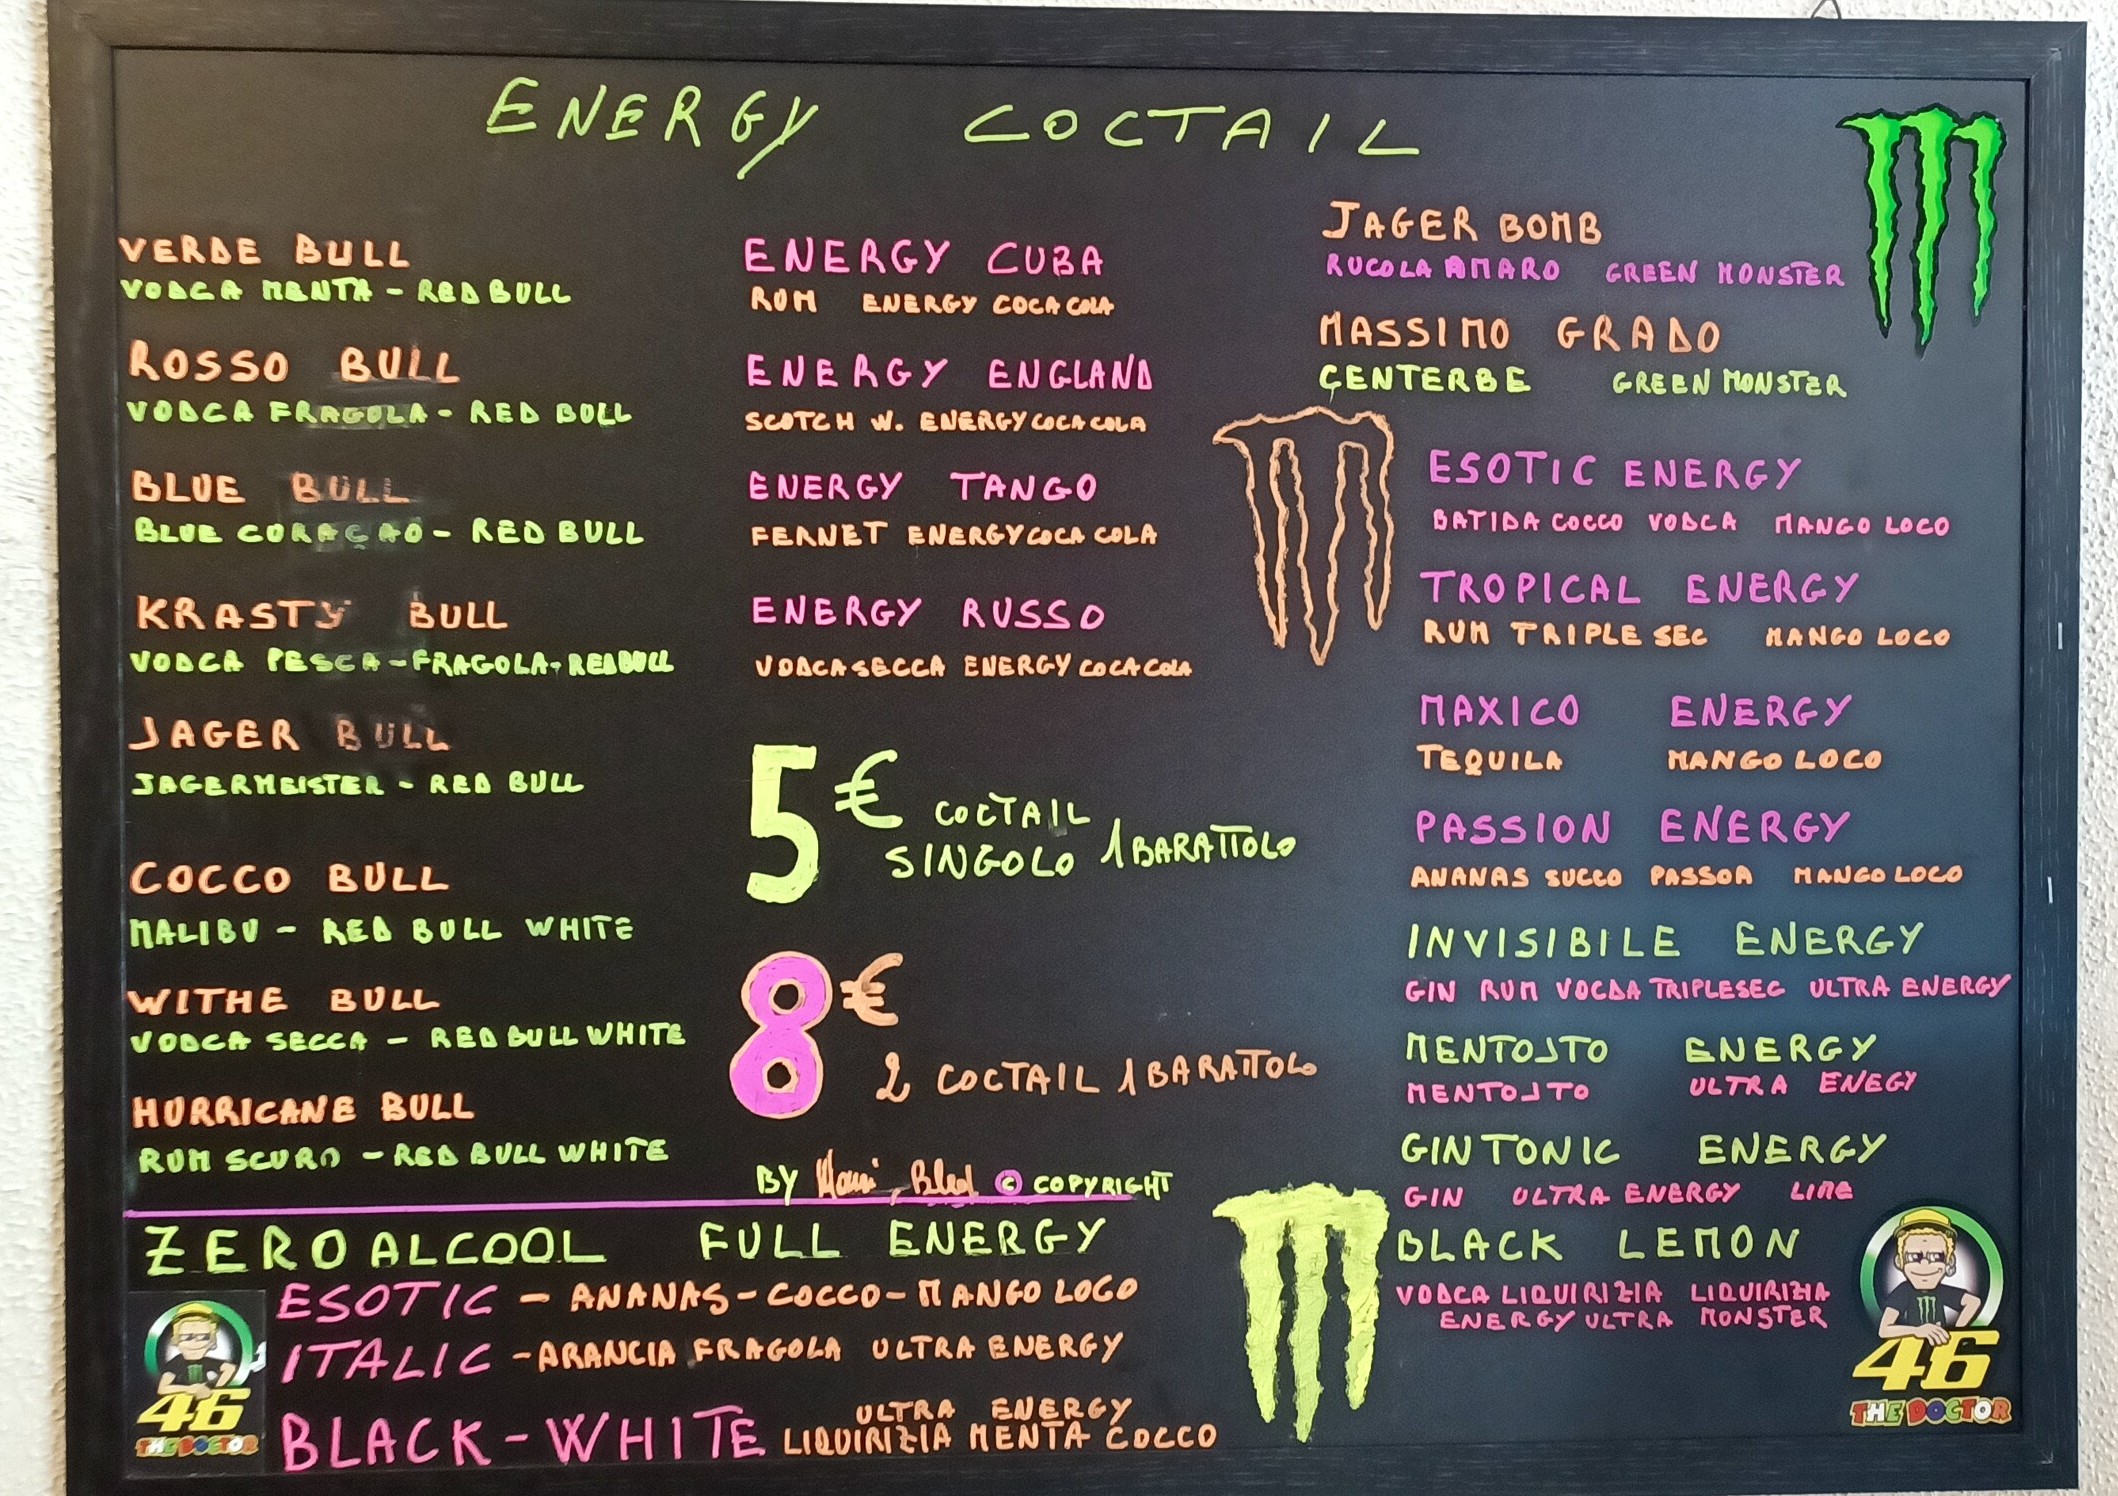 ENERGY COCTAIL
VERDE BULL
VODCA MENTA - RED BULL
ROSSO BULL
VODCA FRAGOLA - RED BULL
BLUE BULL
BLUE CURAÇAO - RED BULL
KRASTY BULL
VODCA PESCA - FRAGOLA - RED BULL
JAGER BULL
JAGERMEISTER - RED BULL
COCCO BULL
MALIBU - RED BULL WHITE
WITHE BULL
VODCA SECCA - RED BULL WHITE
HURRICANE BULL
RUM SCURO - RED BULL WHITE
ENERGY CUBA
RUM ENERGY COCA COLA
ENERGY ENGLAND
SCOTCH W. ENERGY COCA COLA
ENERGY TANGO
FERNET ENERGY COCA COLA
ENERGY RUSSO
VODCA SECCA ENERGY COCA COLA
5€ COCTAIL
SINGOLO 1 BARATTOLO
8€
2 COCTAIL 1 BARATTOLO
BY © COPYRIGHT
JAGER BOMB
RUCOLA AMARO GREEN MONSTER
MASSIMO GRADO
CENTERBE GREEN MONSTER
ESOTIC ENERGY
BATIDA COCCO VODCA MANGO LOCO
TROPICAL ENERGY
RUM TRIPLE SEC MANGO LOCO
MAXICO ENERGY
TEQUILA MANGO LOCO
PASSION ENERGY
ANANAS SUCCO PASSOA MANGO LOCO
INVISIBILE ENERGY
GIN RUM VOCDA TRIPLESEC ULTRA ENERGY
MENTOJTO ENERGY
MENTOJTO ULTRA ENEGY
GIN TONIC ENERGY
GIN ULTRA ENERGY LIME
BLACK LEMON
VODCA LIQUIRIZIA LIQUIRIZIA
ENERGY ULTRA MONSTER
ZERO ALCOOL FULL ENERGY
ESOTIC - ANANAS - COCCO - MANGO LOCO
ITALIC - ARANCIA FRAGOLA ULTRA ENERGY
BLACK - WHITE ULTRA ENERGY
LIQUIRIZIA MENTA COCCO
46
THE DOCTOR
46
THE DOCTOR